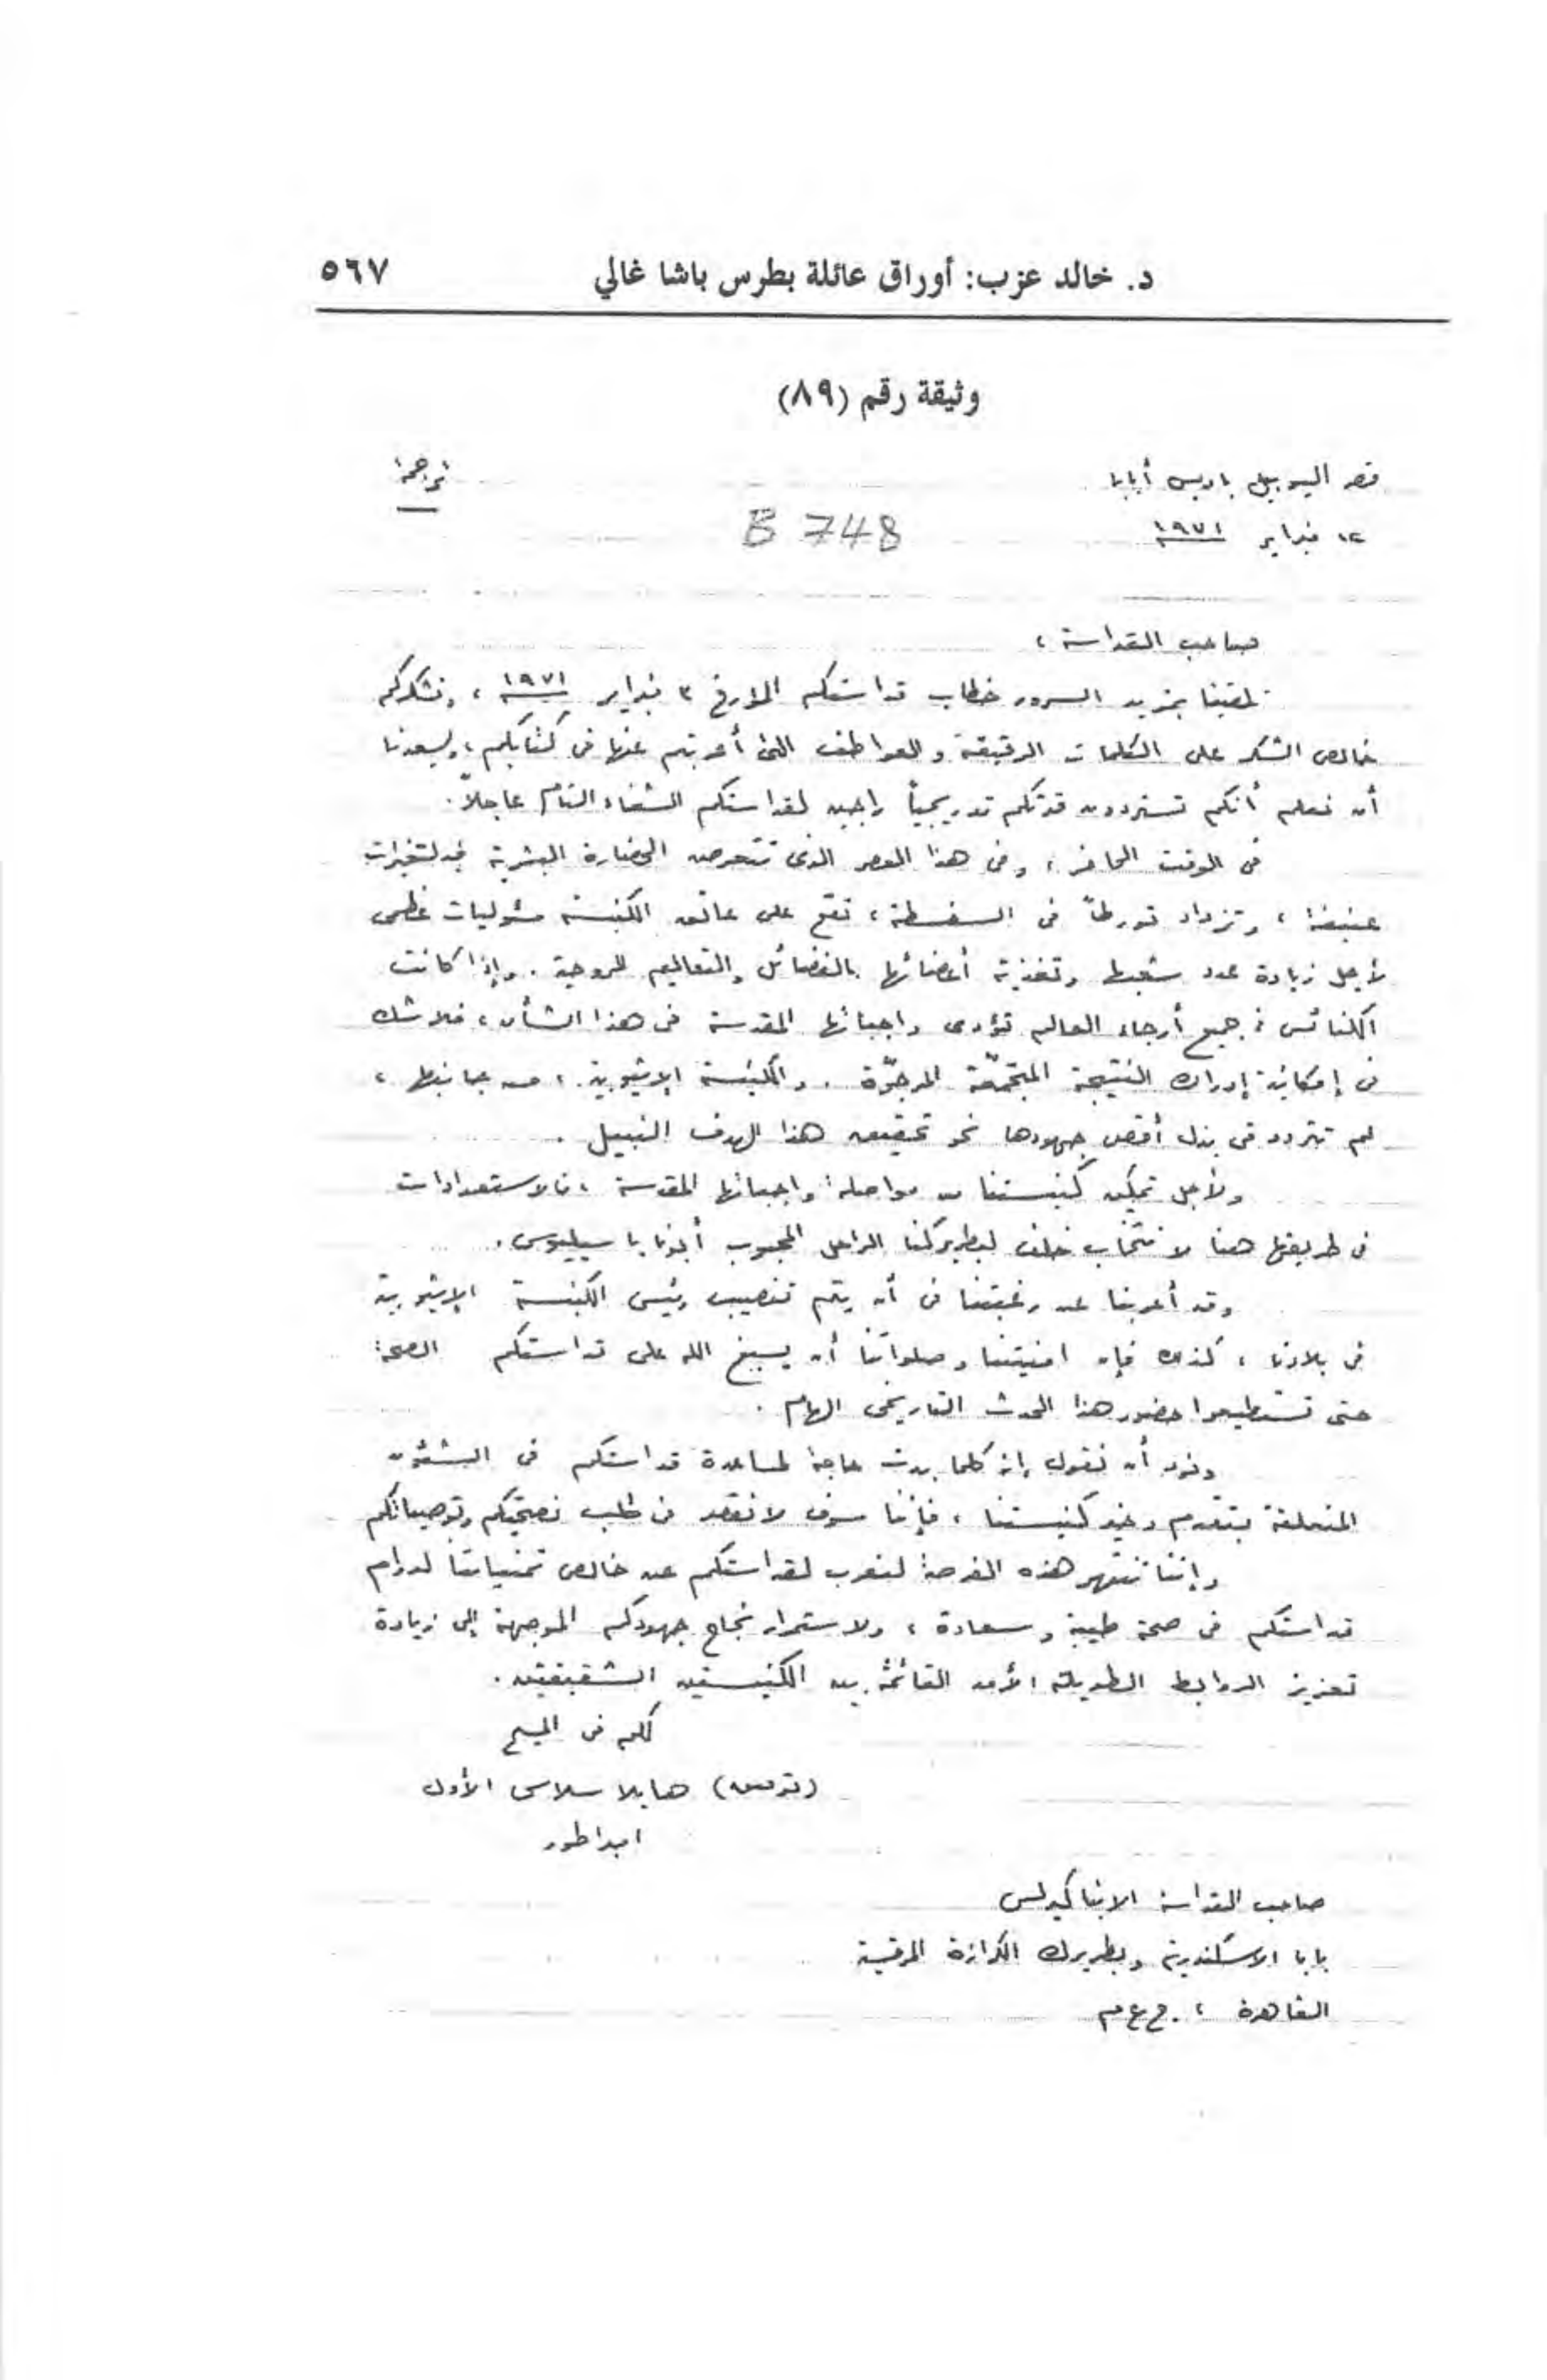 د. خالد عزب: أوراق عائلة بطرس باشا غالي ٥٦٧
وثيقة رقم (٨٩)
قصر اليوبيل باديس أبابا ترجمة
١٢ فبراير ١٩٧١ B 748
صاحب القداسة ،
تلقينا بمزيد السرور خطاب قداستكم المؤرخ ٣ فبراير ١٩٧١ ، ونشكركم
خالص الشكر على الكلمات الرقيقة والعواطف التى أعربتم عنها فى كتابكم ، ويسعدنا
أن نعلم أنكم تستردون قوتكم تدريجياً راجين لقداستكم الشفاء التام عاجلاً .
فى الوقت الحاضر ، وفى هذا العصر الذى تتعرض الحضارة البشرية فيه لتغيرات
عنيفة ، وتزداد تورطاً فى السفسطة ، تقع على عاتق الكنيسة مسئوليات عظمى
لأجل زيادة عدد شعبها وتغذية أعضائها بالفضائل والتعاليم الروحية . وإذا كانت
الكنائس فى جميع أرجاء العالم تؤدى واجباتها المقدسة فى هذا الشأن ، فلا شك
فى إمكانية إدراك النتيجة المتجمّعة المرجوّة . والكنيسة الإثيوبية ، من جانبها ،
لم تتردد فى بذل أقصى جهودها نحو تحقيق هذا الهدف النبيل .
ولأجل تمكين كنيستنا من مواصلة واجباتها المقدسة ، فالاستعدادات
فى طريقها هنا لانتخاب خلف لبطريركنا الراحل المحبوب أبونا باسيليوس .
وقد أعربنا عن رغبتنا فى أن يتم تنصيب رئيس الكنيسة الإثيوبية
فى بلادنا ، كذلك فإن امنيتنا وصلواتنا أن يسبغ الله على قداستكم الصحة
حتى تستطيعوا حضور هذا الحدث التاريخى الهام .
ونود أن نقول إنه كلما بدت حاجة لمساعدة قداستكم فى الشئون
المتعلقة بتقدم وخير كنيستنا ، فإننا سوف لا نقصر فى طلب نصيحتكم وتوصياتكم
وإننا ننتهز هذه الفرصة لنعرب لقداستكم عن خالص تمنياتنا لدوام
قداستكم فى صحة طيبة وسعادة ، ولاستمرار نجاح جهودكم الموجهة إلى زيادة
تعزيز الروابط الطويلة الأمد القائمة بين الكنيستين الشقيقتين .
لكم فى المسيح
(توقيع) هايلا سلاسى الأول
امبراطور
صاحب القداسة الانبا كيرلس
بابا الاسكندرية وبطريرك الكرازة المرقسية
القاهرة ، ج ع م